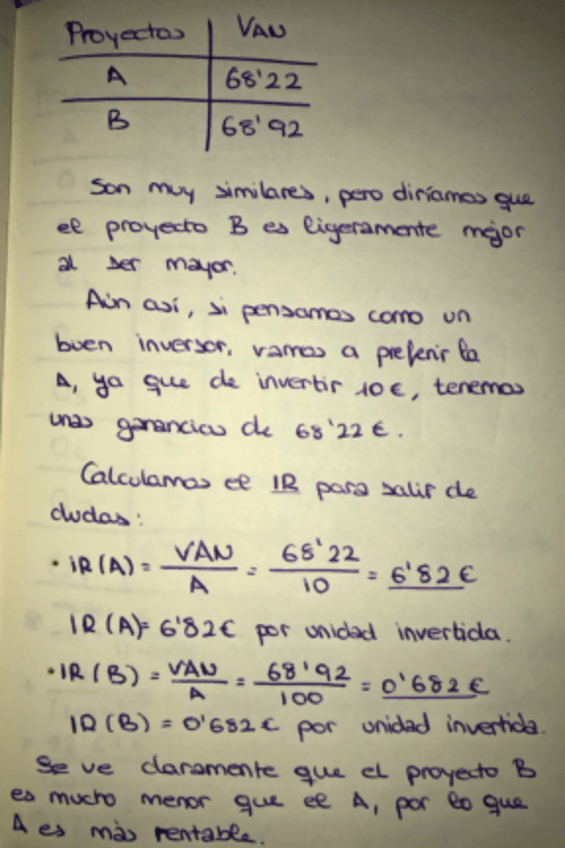 Proyectos VAN
A 68'22
B 68'92
Son muy similares, pero diríamos que
el proyecto B es ligeramente mejor
al ser mayor.
Aún así, si pensamos como un
buen inversor, vamos a preferir la
A, ya que de invertir 10 €, tenemos
unas ganancias de 68'22 €.
Calculamos el IR para salir de
dudas:
· IR (A) = VAN / A = 68'22 / 10 = 6'82 €
IR (A) = 6'82 € por unidad invertida.
· IR (B) = VAN / A = 68'92 / 100 = 0'682 €
IR (B) = 0'682 € por unidad invertida.
Se ve claramente que el proyecto B
es mucho menor que el A, por lo que
A es más rentable.